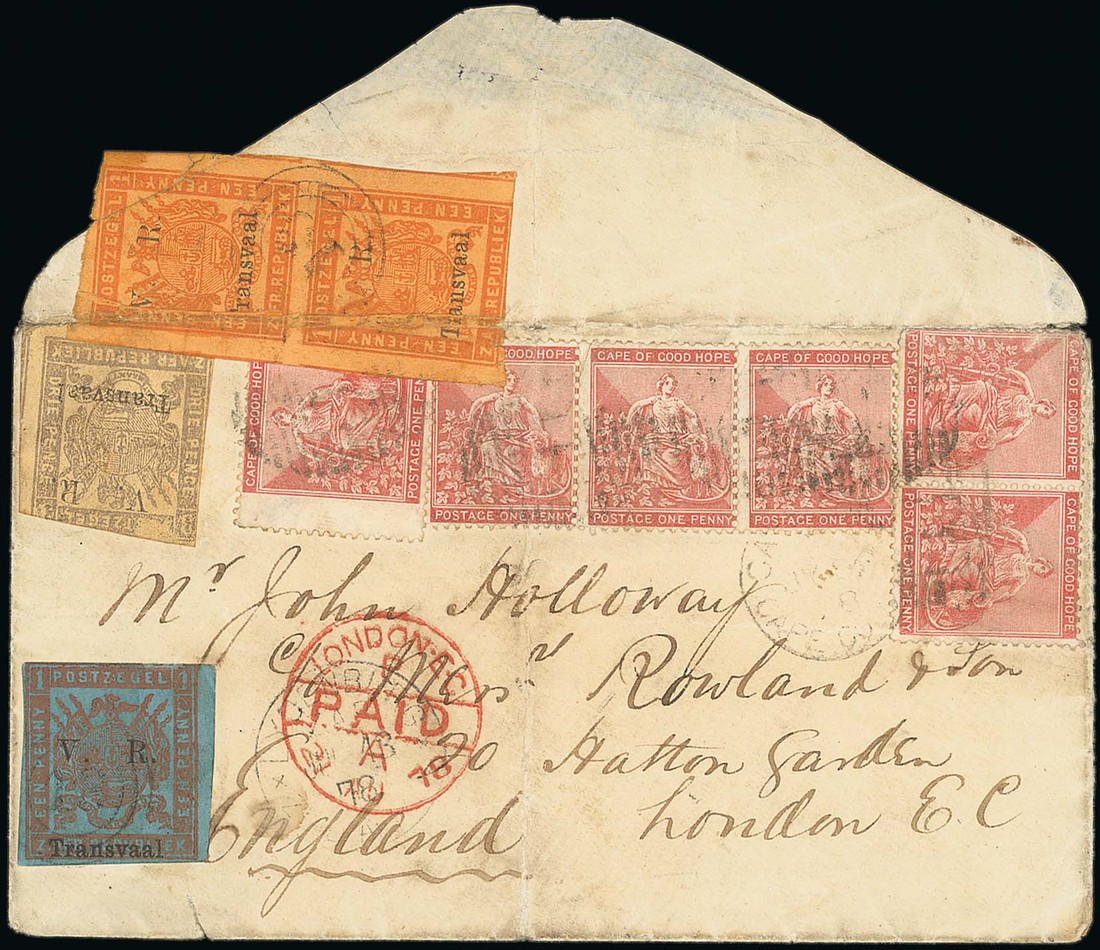 POSTZEGEL
EEN PENNY
EEN PENNY
Z. AFR. REPUBLIEK
V. R.
Transvaal
POSTZEGEL
EEN PENNY
EEN PENNY
Z. AFR. REPUBLIEK
V. R.
Transvaal
AFR. REPUBLIEK
DRIE PENCE
DRIE PENCE
POSTZEGEL
V. R.
Transvaal
CAPE OF GOOD HOPE
POSTAGE ONE PENNY
CAPE OF GOOD HOPE
POSTAGE ONE PENNY
CAPE OF GOOD HOPE
POSTAGE ONE PENNY
CAPE OF GOOD HOPE
POSTAGE ONE PENNY
CAPE OF GOOD HOPE
POSTAGE ONE PENNY
CAPE OF GOOD HOPE
POSTAGE ONE PENNY
Mr John Holloway
Rowland & Son
20 Hatton Garden
London E.C
England
LONDON. E.C
PAID
A
78
78
1 POSTZEGEL 1
EEN PENNY
EEN PENNY
V. R.
Transvaal